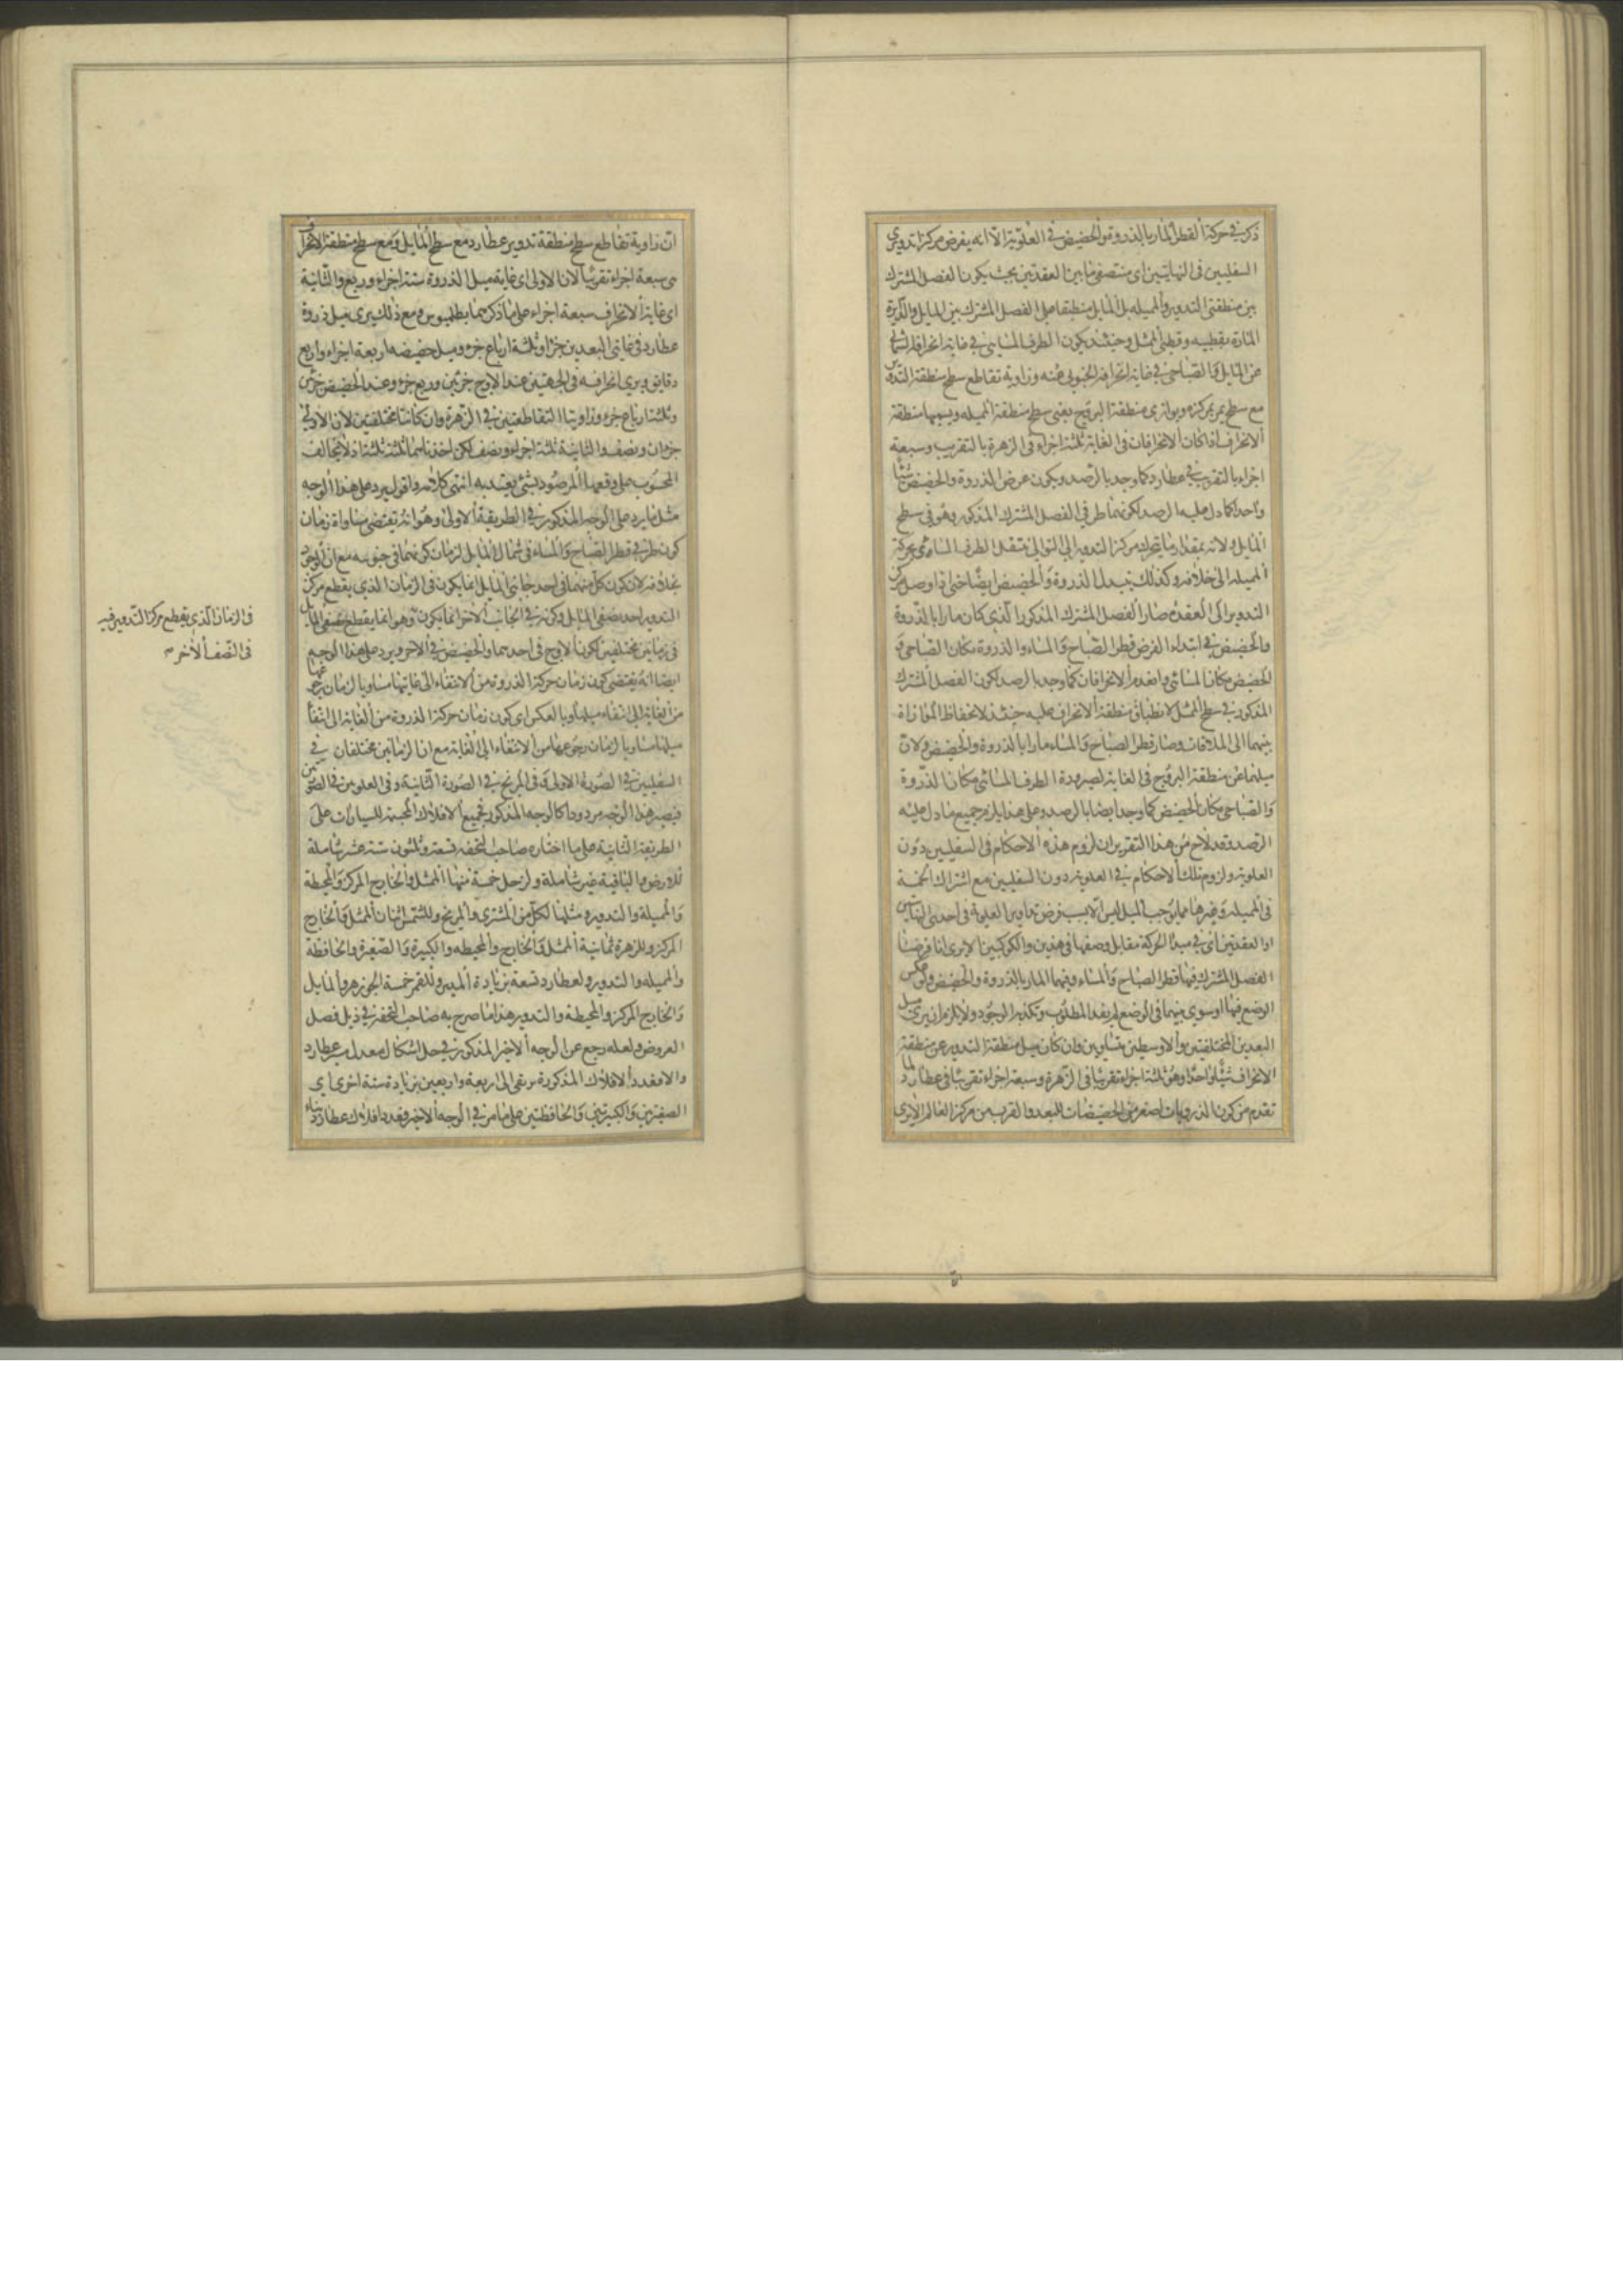 ذكر في حركة القطر المار بالذروة والحضيض في العلوية الا انه يفرض مركزا تدويري
السفليين في النهايتين اى منتصفى ما بين العقدتين بحيث يكون الفصل المشترك
بين منطقتى التدوير والمميله بل المايل منطبقا على الفصل المشترك بين المايل والدايرة
المارة بقطبيه و قطبى الممثل وحينئذ يكون الطرف المسايى في غاية انحرافه الشمالى
عن المايل والصباحى في غاية انحرافه الجنوبى عنه وزاوية تقاطع سطح منطقة التدوير
مع سطح يمر بمركزه ويوازى منطقة البروج يعنى سطح منطقة المميله ويسميها منطقة
الانحراف اذا كان الانحرافان فى الغاية ثلثة اجزاء فى الزهرة بالتقريب وسبعة
اجزاء بالتقريب في عطارد كما وجد بالرصد ويكون عرض الذروة والحضيض شيئا
واحدا كما دل عليه الرصد لكونهما طرفى الفصل المشترك المذكور وهو فى سطح
المايل ولانه بمقدار ما يتحرك مركز التدوير الى التوالى ينتقل الطرف المسائى بحركة
المميله الى خلافه وكذلك يتبدل الذروة والحضيض ايضا حتى اذا وصل مركز
التدوير الى العقده صار الفصل المشترك المذكور الذى كان مارا بالذروة
والحضيض في ابتداء الفرض قطر الصباح والمساء والذروة مكان الصباحى و
الحضيض مكان المسائى وانعدم الانحرافان كما وجد بالرصد لكون الفصل المشترك
المذكور في سطح الممثل لانطباق منطقة الانحراف عليه حينئذ لانحفاظ الموازاة
بينهما الى الملاقات وصار قطر الصباح والمساء مارا بالذروة والحضيض ولان
ميلهما عن منطقة البروج فى الغاية لصيرورة الطرف المسائى مكان الذروة
والصباحى مكان الحضيض كما وجد ايضا بالرصد وعلى هذا يلزم جميع ما دل عليه
الرصد وقد لاح من هذا التقرير ان لزوم هذه الاحكام فى السفليين دون
العلوية ولزوم تلك الاحكام في العلوية دون السفليين مع اشتراك الخمسة
فى المميله وغيرها مما يوجب الميل ليس الا بسبب فرض تداوير العلوية فى احدى النهايتين
او العقدتين اى في مبدأ الحركة مقابل وضعها فى هذين والكوكبين الا يرى انا فرضنا
الفصل المشترك فيها قطر الصباح والمساء وفيهما المار بالذروة والحضيض ولو عكس
الوضع فيها او سوى بينهما فى الوضع لم يفد المطلوب ويكذبه الوجود ولا يلزم ان يرى ميل
البعدين المختلفتين والاوسطين متساويين وان كان ميل منطقة التدوير عن منطقة
الانحراف شيئا واحدا وهو ثلثة اجزاء تقريبا فى الزهرة وسبعة اجزاء تقريبا فى عطارد لما
تقدم من كون الذرويات اصغر من الحضيضيات للبعد والقرب من مركز العالم الا يرى
ان زاوية تقاطع سطح منطقة تدوير عطارد مع سطح المايل ومع سطح منطقة الانحراف
هى سبعة اجزاء تقريبا لان الاولى اى غاية ميل الذروة ستة اجزاء وربع والثانية
اى غاية الانحراف سبعة اجزاء على ما ذكرهما بطلميوس ومع ذلك يرى ميل ذروة
عطارد فى غايتى البعدين جزأ وثلثة ارباع جزء وميل حضيضه اربعة اجزاء واربع
دقايق ويرى انحرافه فى الجهتين عند الاوج جزئين وربع جزء وعند الحضيض جزئين
وثلثة ارباع جزء وزاويتا التقاطعتين في الزهرة وان كانتا مختلفتين لان الاولى
جزءان ونصف والثانية ثلثة اجزاء ونصف لكن اخذناهما ثلثة ثلثة اذ لا يخالف
المحسوب على وقعهما المرصود بشئ يعتد به انتهى كلامه واقول يرد على هذا الوجه
مثل ما يرد على الوجه المذكور في الطريقة الاولى وهو انه يقتضى مساواة زمان
كون طرفى قطر الصباح والمساء فى شمال المايل لزمان كونهما فى جنوبه مع ان الوجود
بخلافه لان كون كل منهما فى احد جانبى المايل انما يكون فى الزمان الذى يقطع مركز
التدوير احد نصفى المايل وكونه في الجانب الاخر انما يكون وهو انما يقطع نصفى المايل
فى زمانين مختلفين لكون الاوج فى احدهما والحضيض في الاخر ويرد على هذا الوجه
ايضا انه يقتضى كون زمان حركة الذروة من الانتفاء الى غايتها مساويا لزمان رجوعها
من الغاية الى انتفاء ميلها وبالعكس اى كون زمان حركة الذروة من الغاية الى انتفاء
ميلها مساويا لزمان رجوعها من الانتفاء الى الغاية مع ان الزمانين مختلفان في
السفليين في الصورة الاولى وفى المريخ في الصورة الثانية وفى العلويين فى الصورتين
فيصير هذا الوجه مردودا كالوجه المذكور فجميع الافلاك المجسمة للسيارات على
الطريقة الثانية على ما اختاره صاحب التحفه تسعة وثلثون ستة عشر شاملة
للارض والباقية غير شاملة ولزحل خمسة منها الممثل والخارج المركز والمحيطة
والمميلة والتدوير ومثلها لكل من المشترى والمريخ وللشمس اثنان الممثل والخارج
المركز وللزهرة ثمانية الممثل والخارج والمحيطه والكبيرة والصغيرة والحافظة
والمميله والتدوير ولعطارد تسعة بزيادة المدير وللقمر خمسة الجوزهر والمايل
والخارج المركز والمحيطة والتدوير هذا ما صرح به صاحب التحفة في ذيل فصل
العروض ولعله رجع عن الوجه الاخير المذكور في حل اشكال معدل مسير عطارد
والا فعدد الافلاك المذكورة يرتقى الى اربعة واربعين بزيادة ستة اخرى اى
الصغيرتين والكبيرتين والحافظتين على ما مر في الوجه الاخير وعدد افلاك عطارد
فى الزمان الذى يقطع مركز التدوير فيه
فى النصف الاخر